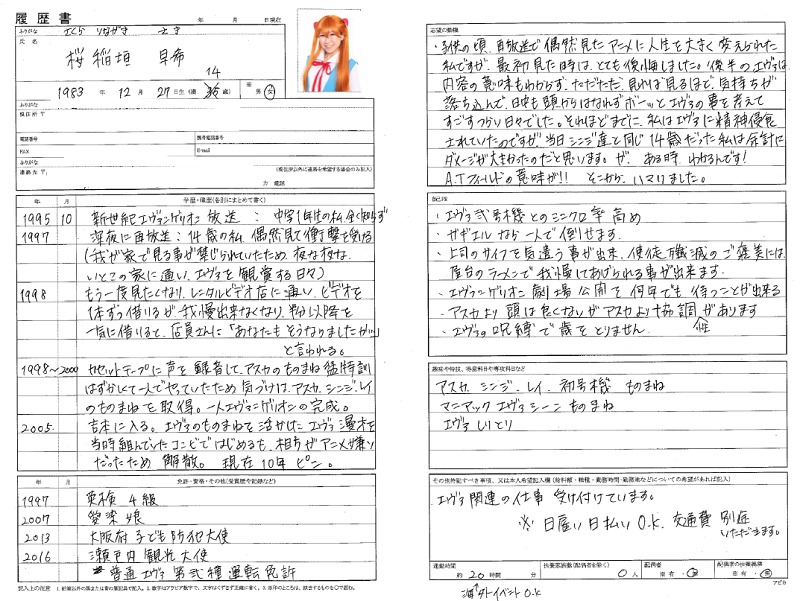 履歴書
年 月 日現在
ふりがな さくら いながき さき
氏名
桜 稲垣 早希
14
1983 年 12 月 27 日生(満 歳) ※ 男・女
ふりがな
現住所 〒
電話番号
携帯電話番号
FAX
E-mail
ふりがな
連絡先 〒
(現住所以外に連絡を希望する場合のみ記入)
方 電話
年 月 学歴・職歴(各別にまとめて書く)
1995 10 新世紀エヴァンゲリオン放送 : 中学1年生の私、全く知らず
1997 深夜に再放送 : 14歳の私、偶然見て衝撃を受ける
(我が家で見る事が禁じられていたため、夜な夜な
いとこの家に通い、エヴァを観賞する日々)
1998 もう一度見たくなり、レンタルビデオ店に通い、ビデオを
1本ずつ借りるが我慢出来なくなり、 以降を
一気に借りると、店員さんに「あなたもそうなりましたか…」
と言われる。
1998〜2000 カセットテープに声を録音して、アスカのものまね猛特訓
はずかしくて一人でやっていたため気づけば、アスカ、シンジ、レイ
のものまねを取得。一人エヴァンゲリオンの完成。
2005 吉本に入る。エヴァのものまねを活かしたエヴァ漫才を
当時組んでいたコンビではじめるも、相方がアニメが嫌い
だったため 解散。 現在10年ピン。
年 月 免許・資格・その他(受賞歴や記録など)
1997 英検 4級
2007 愛染娘
2013 大阪府 子ども防犯大使
2016 瀬戸内観光大使
* 普通エヴァ 第弐種 運転免許
記入上の注意
志望の動機
・子供の頃、再放送で偶然見たアニメに人生を大きく変えられた
私ですが、最初見た時は、とても後悔しました。後半のエヴァは
内容の意味もわからず、ただただ、見れば見るほど、気持ちが
落ち込んで、日中も頭からはなれずボーッとエヴァの事を考えて
すごすつらい日々でした。それほどまでに、私はエヴァに精神侵食
されていたのですが、当日シンジ達と同じ14歳だった私は余計に
ダメージが大きかったのだと思います。が、ある時、わかるんです!
A.Tフィールドの意味が!! そこから、ハマりました。
自己PR
・エヴァ弐号機とのシンクロ率高め
・ガギエルなら一人で倒せます。
・上司のサイフを気遣う事が出来、使徒殲滅のご褒美には、
屋台のラーメンで我慢してあげられる事が出来ます。
・エヴァンゲリオン劇場公開を何年でも待つことが出来る
・アスカより頭は良くないがアスカより協調性があります
・エヴァの呪縛で歳をとりません
趣味や特技、得意科目や専攻科目など
アスカ、シンジ、レイ、初号機 ものまね
マニアック エヴァシーン ものまね
エヴァしりとり
その他特記すべき事項、又は本人希望記入欄(給料額・職種・勤務時間・勤務地などについての希望があれば記入)
エヴァ関連の仕事 受け付けています。
※ 日雇い 日払い O.K. 交通費 別途
いただきます。
通勤時間
約 20 時間 分
扶養家族数(配偶者を除く)
0 人
配偶者
有・無
配偶者の扶養義務
有・無
アピカ